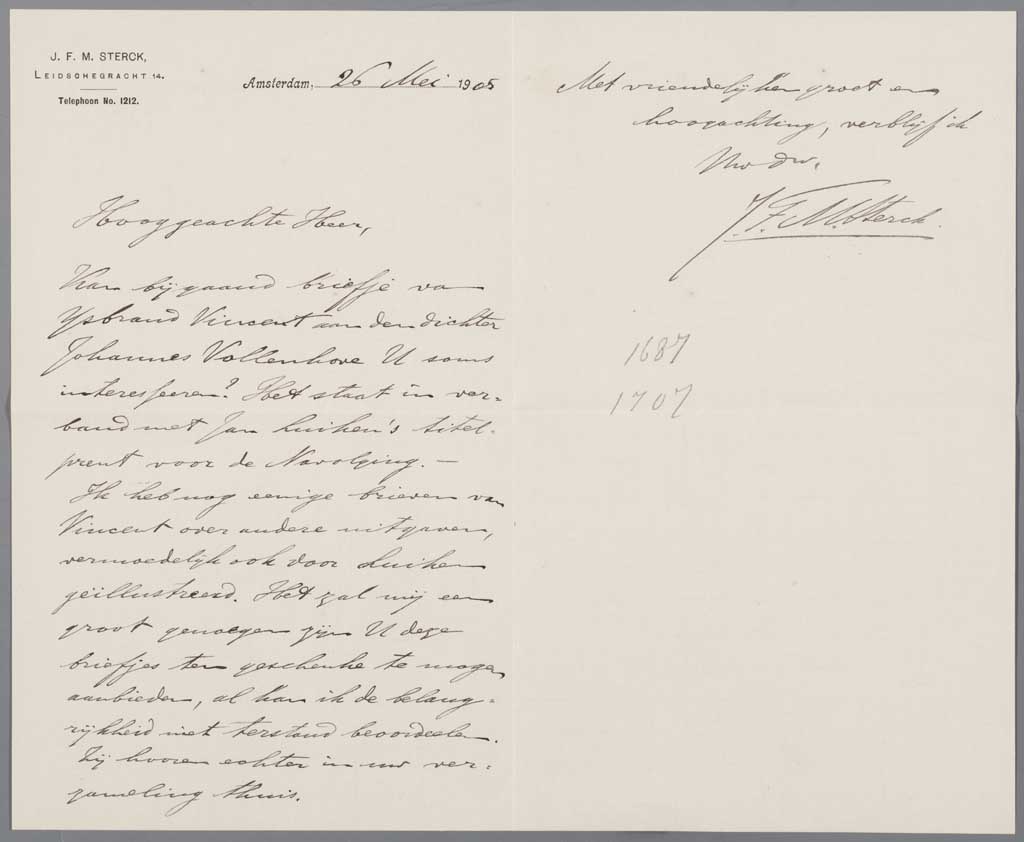 J. F. M. STERCK,
LEIDSCHEGRACHT 14.
Telephoon No. 1212.
Amsterdam, 26 Mei 1905
Hooggeachte Heer,
Kan bijgaand briefje van
Ysbrand Vincent aan den dichter
Johannes Vollenhove U soms
interesseeren? Het staat in ver-
band met Jan Luiken's titel-
prent voor de Navolging. —
Ik heb nog eenige brieven van
Vincent over andere uitgaven,
vermoedelijk ook door Luiken
geïllustreerd. Het zal mij een
groot genoegen zijn U deze
briefjes ten geschenke te mogen
aanbieden, al kan ik de belang-
rijkheid niet terstond beoordeelen.
Zij hooren echter in uw ver-
zameling thuis.
Met vriendelijken groet en
hoogachting, verblijf ik
Uw dw.
J. F. M. Sterck.
1687
1707